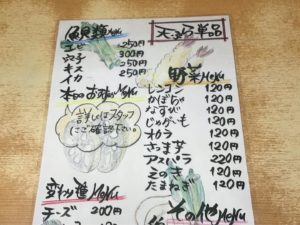 天ぷら単品
魚類Menu
エビ 250円
穴子 300円
キス 250円
イカ 250円
本日のおすすめMenu
詳しくはスタッフ
にご確認下さい。
変わり種Menu
チーズ 200円
野菜Menu
レンコン 120円
かぼちゃ 120円
なすび 120円
じゃがいも 120円
オクラ 120円
さつま芋 120円
アスパラ 220円
えのき 120円
たまねぎ 120円
その他Menu